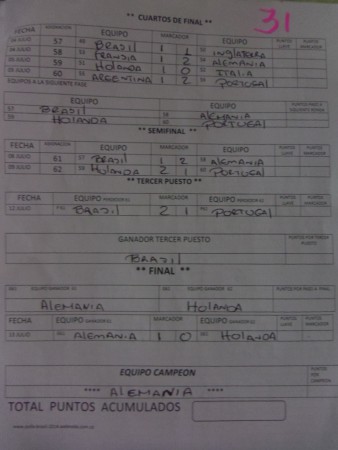 31
** CUARTOS DE FINAL **
FECHA EQUIPO MARCADOR EQUIPO PUNTOS LLAVE PUNTOS MARCADOR
04 JULIO 57 BRASIL 1 1 INGLATERRA
58 FRANCIA 1 2 ALEMANIA
59 HOLANDA 1 0 ITALIA
60 ARGENTINA 1 2 PORTUGAL
EQUIPOS A LA SIGUIENTE FASE
57 BRASIL 58 ALEMANIA
59 HOLANDA 60 PORTUGAL
** SEMIFINAL **
08 JULIO 61 57 BRASIL 1 2 58 ALEMANIA
09 JULIO 62 59 HOLANDA 2 1 60 PORTUGAL
** TERCER PUESTO **
FECHA EQUIPO PERDEDOR 61 MARCADOR EQUIPO PERDEDOR 62 PUNTOS LLAVE PUNTOS MARCADOR
12 JULIO P.61 BRASIL 2 1 P62 PORTUGAL
GANADOR TERCER PUESTO PUNTOS POR TERCER PUESTO
BRASIL
** FINAL **
G61 EQUIPO GANADOR 61 G62 EQUIPO GANADOR 62 PUNTOS POR PASO A FINAL
ALEMANIA HOLANDA
FECHA EQUIPO GANADOR 61 MARCADOR EQUIPO GANADOR 62 PUNTOS LLAVE PUNTOS MARCADOR
13 JULIO G61 ALEMANIA 1 0 G62 HOLANDA
EQUIPO CAMPEON PUNTOS POR CAMPEON
**** ALEMANIA ****
TOTAL PUNTOS ACUMULADOS